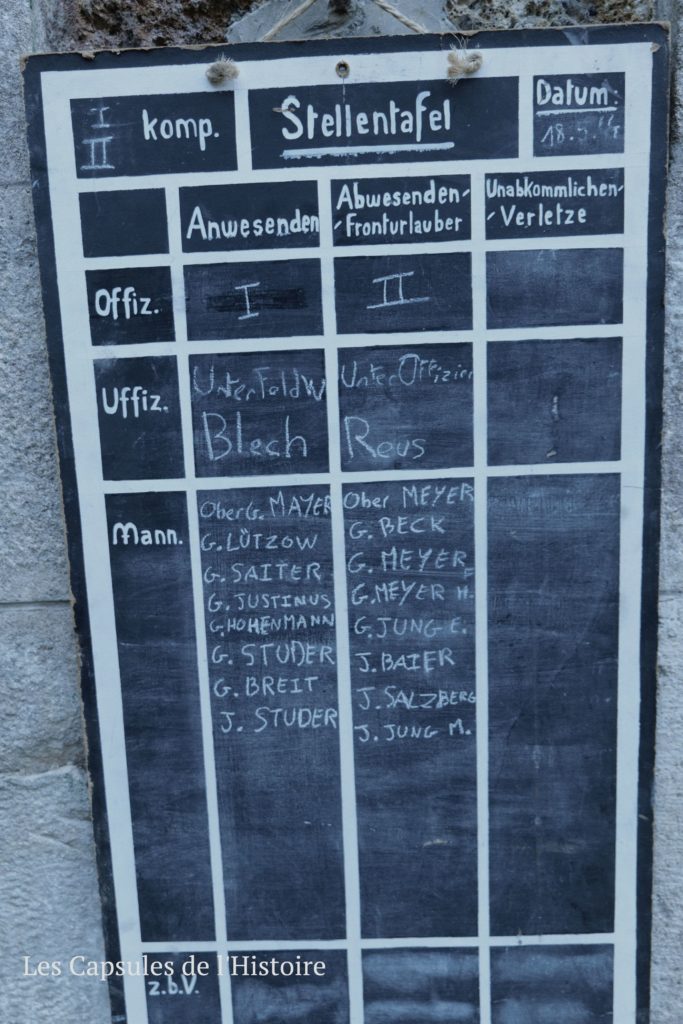 I
II
komp.
Stellentafel
Datum:
18.5.44
Anwesenden
Abwesenden-
-Fronturlauber
Unabkommlichen-
-Verletze
Offiz.
I
II
Uffiz.
UnterFeldw
Blech
UnterOffizier
Reus
Mann.
OberG. MAYER
G. LÜTZOW
G. SAITER
G. JUSTINUS
G. HOHENMANN
G. STUDER
G. BREIT
J. STUDER
Ober MEYER
G. BECK
G. MEYER
G. MEYER H.
G. JUNG E.
J. BAIER
J. SALZBERG
J. JUNG M.
z.b.V.
Les Capsules de l'Histoire